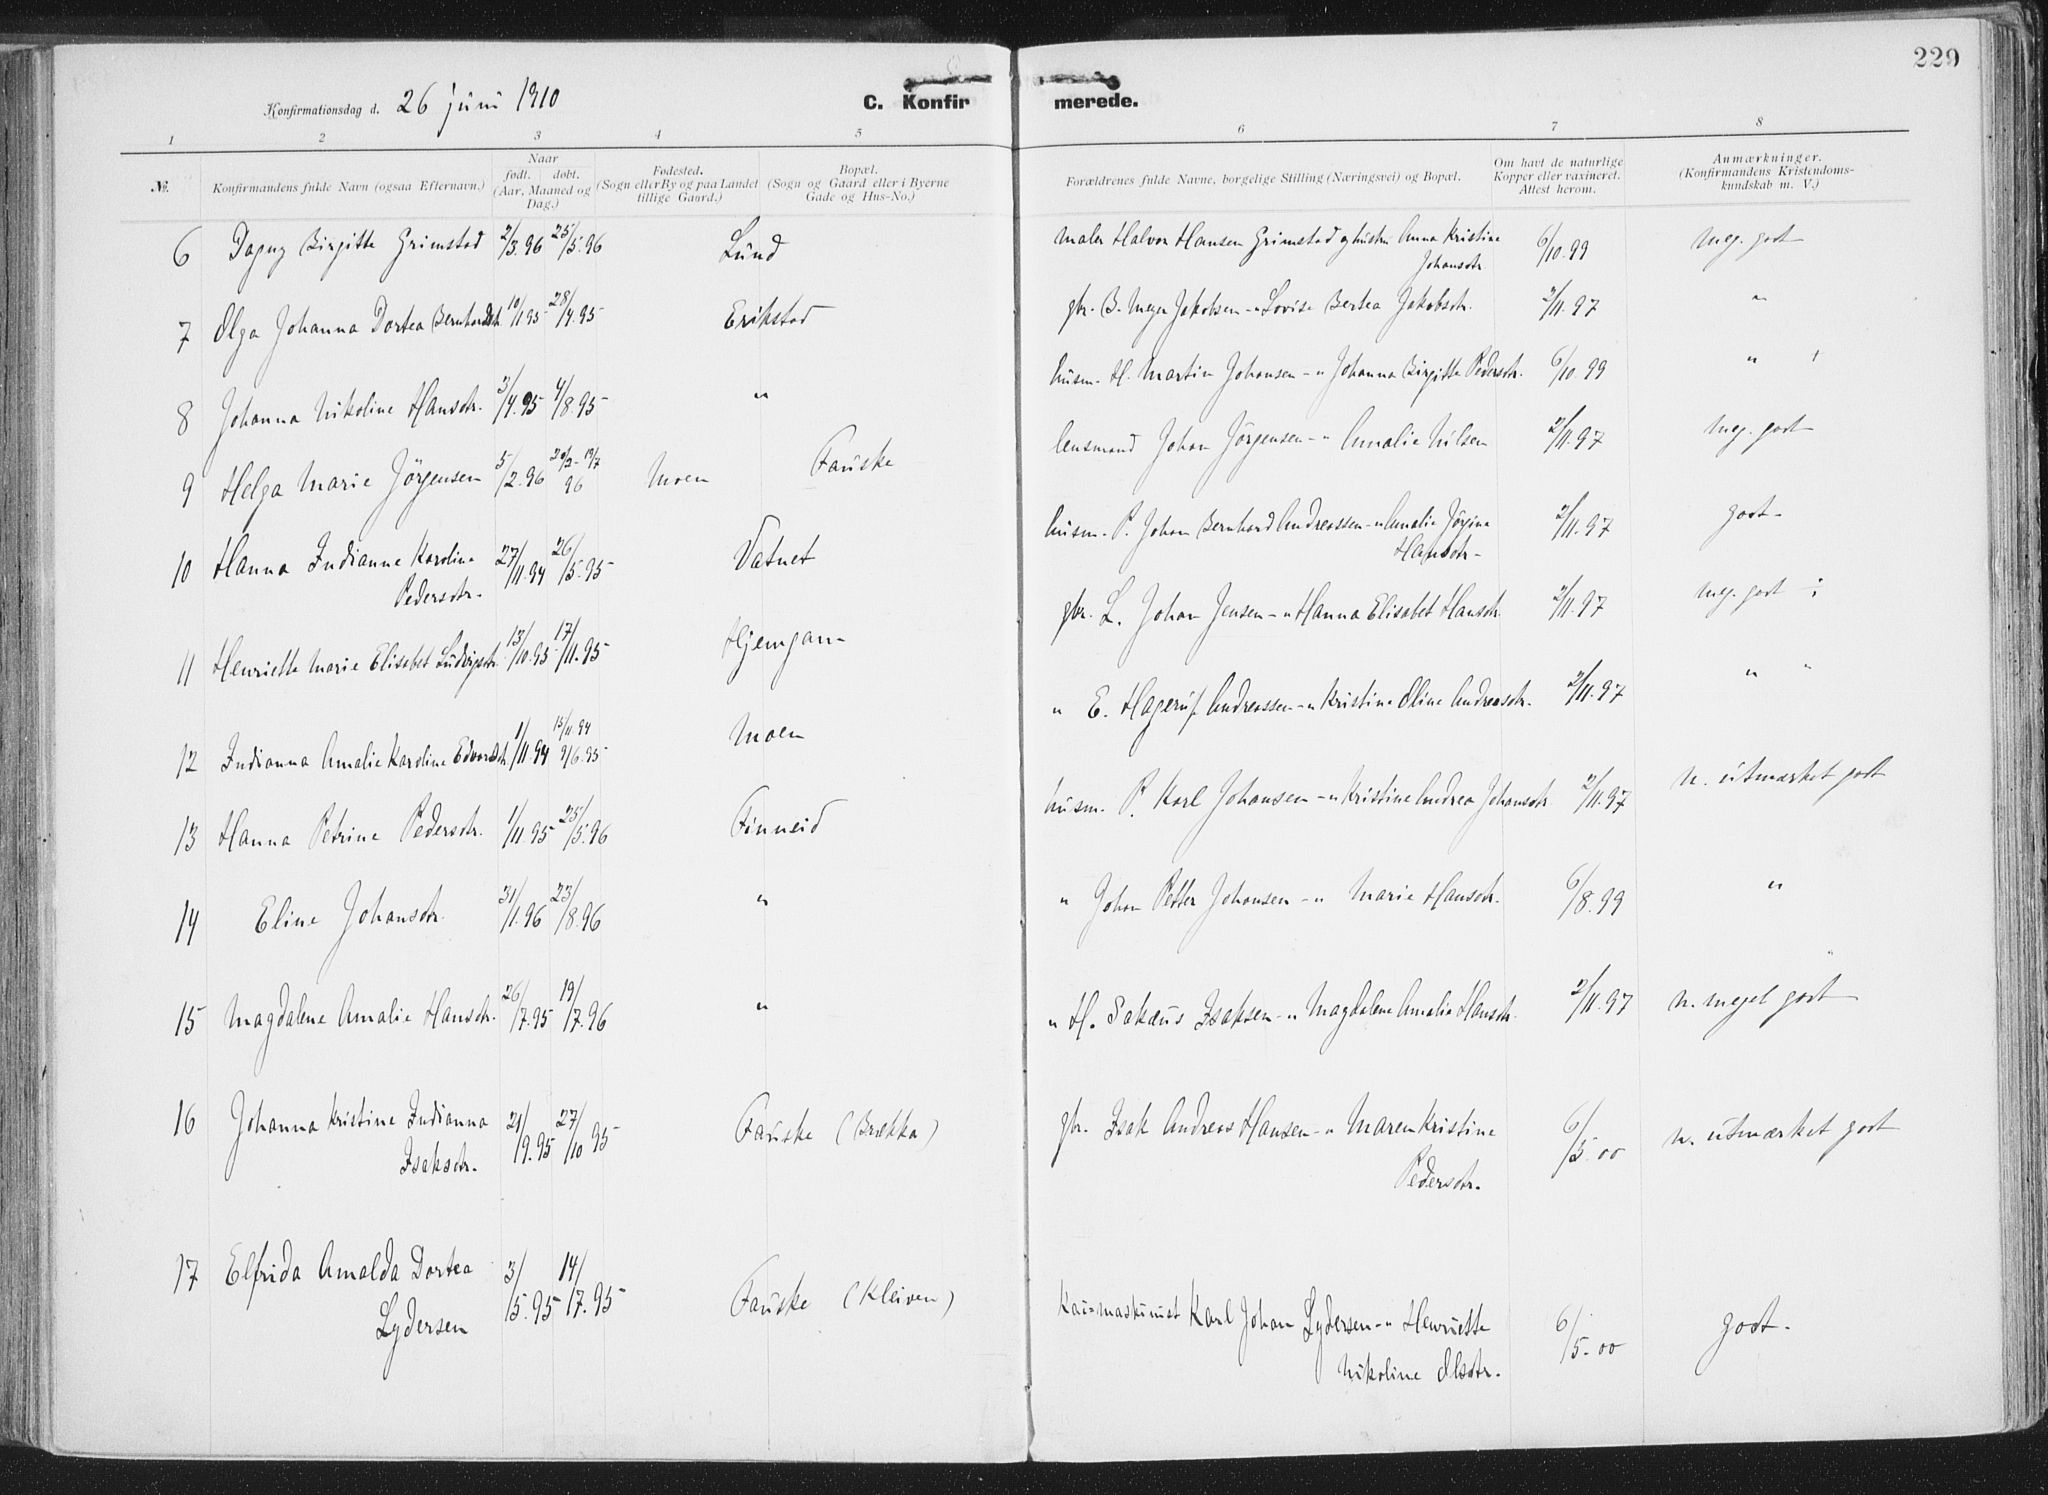 229
Konfirmationsdag d. 26 juni 1910
C. Konfir merede.
1 2 3 4 5 6 7 8
№. Konfirmandens fulde Navn (ogsaa Efternavn.) Naar født. døbt. (Aar, Maaned og Dag.) Fødested. (Sogn eller By og paa Landet tillige Gaard.) Bopæl. (Sogn og Gaard eller i Byerne Gade og Hus-No.) Forældrenes fulde Navne, borgelige Stilling (Næringsvei) og Bopæl. Om havt de naturlige Kopper eller vaxineret. Attest herom. Anmærkninger. (Konfirmandens Kristendoms-kundskab m. V.)
6 Dagny Birgitte Grimstad 2/3.96 25/5.96 Lund maler Halvor Hansen Grimstad og hustru Anna Kristine 6/10.99 meg. godt
Johansdtr.
7 Olga Johanna Dortea Bernhardsdtr. 10/1.95 28/4.95 Erikstad gbr. B. Meyer Jakobsen -" Lovise Bertea Jakobsdtr. 2/11.97 "
8 Johanna Nikoline Hansdtr. 3/4.95 4/8.95 " husm. H. Martin Johansen -" Johanna Birgitte Pedersdtr. 6/10.99 "
9 Helga Marie Jörgensen 5/2.96 20/2- 19/7 96 Moen Fauske lensmand Johan Jörgensen -" Amalie Nilsen 2/11.97 meg. godt
10 Hanna Indianne Karoline 27/11.94 26/5.95 Vatnet husm. P. Johan Bernhard Andreassen -" Amalie Jörgine 2/11.97 godt -
Pedersdtr. Hansdtr -
11 Henriette Marie Elisabet Ludvigsdtr. 13/10.95 17/11.95 Hjemgam- gbr. L. Johan Jensen -" Hanna Elisabet Hansdtr. 2/11.97 meg. godt
12 Indianna Amalie Karoline Edvardsdtr. 1/11.94 15/11.94 9/6.95 Moen " E. Hagerup Andreassen -" Kristine Oline Andreasdtr. 2/11.97 " "
13 Hanna Petrine Pedersdtr. 1/11.95 25/5.96 Finneid husm. P. Karl Johansen -" Kristine Andrea Johansdtr. 2/11.97 n. utmærket godt
14 Eline Johansdtr. 31/1.96 23/8.96 " " Johan Petter Johansen -" Marie Hansdtr. 6/8.99 "
15 Magdalene Amalie Hansdtr. 26/7.95 19/7.96 " " H. Sakæus Isaksen -" Magdalene Amalie Hansdtr. 2/11.97 n. meget godt
16 Johanna Kristine Indianna 21/9.95 27/10 95 Fauske (Brekka) gbr. Isak Andreas Hansen -" Maren Kristine 6/5.00 n. utmærket godt
Isaksdtr. Pedersdtr.
17 Elfrida Amalda Dortea 3/5.95 14/7.95 Fauske (Kleiven) Kai=maskinist Karl Johan Lydersen -" Henriette 6/5.00 godt.
Lydersen Nikoline Olsdtr.